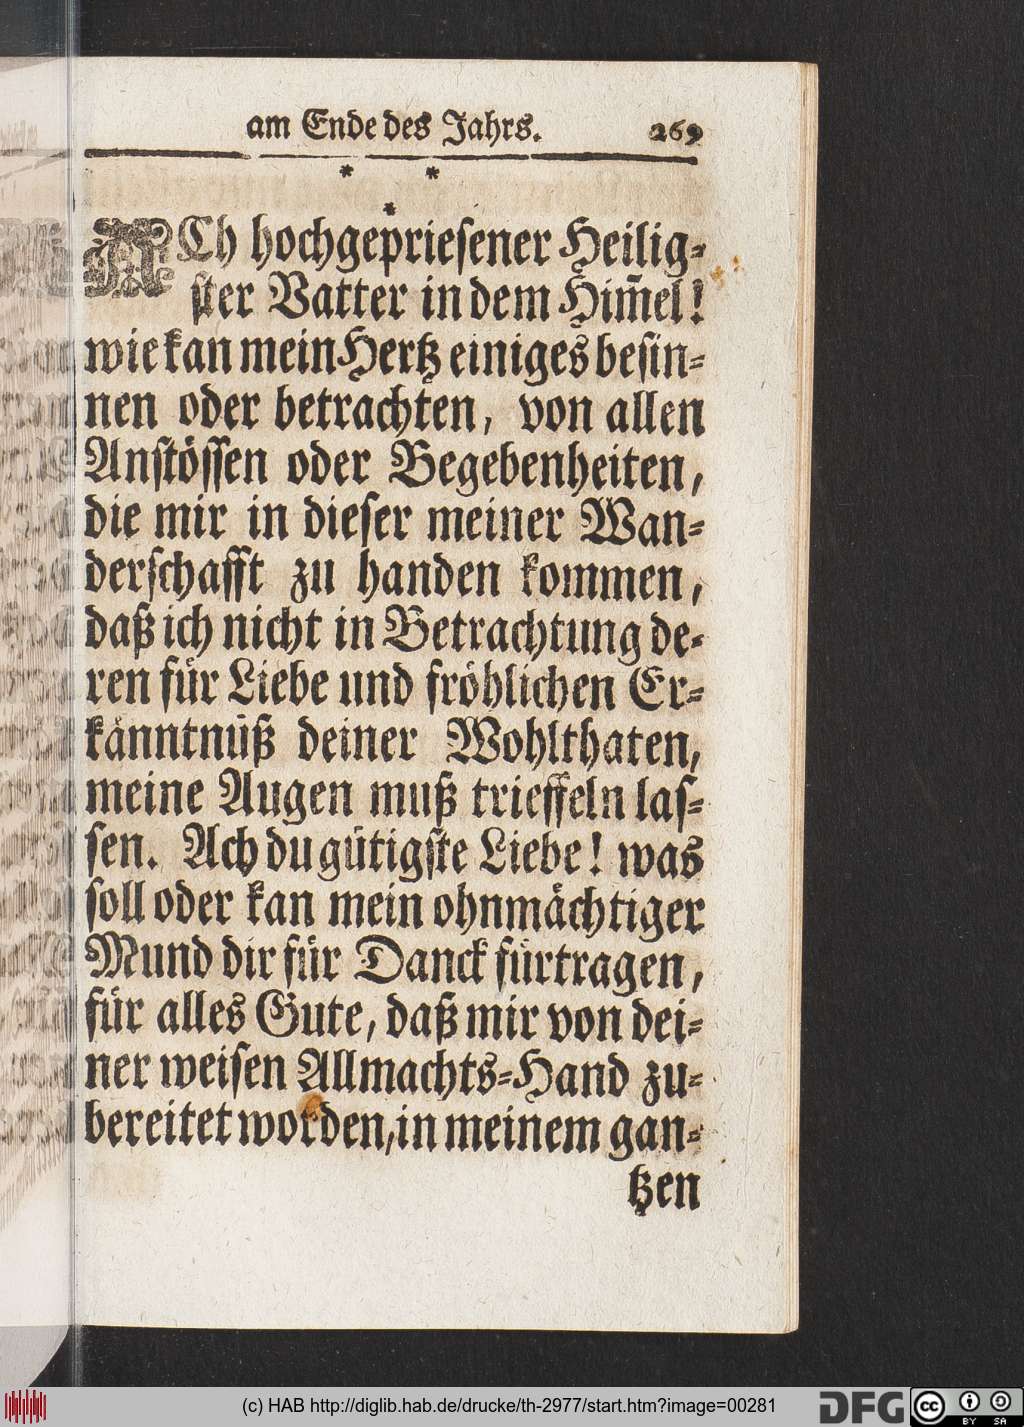 am Ende des Jahrs. 269
* *
*
ACh hochgepriesener Heilig-
ster Vatter in dem Him̃el!
wie kan mein Hertz einiges besin-
nen oder betrachten, von allen
Anstössen oder Begebenheiten,
die mir in dieser meiner Wan-
derschafft zu handen kommen,
daß ich nicht in Betrachtung de-
ren für Liebe und fröhlichen Er-
känntnüß deiner Wohlthaten,
meine Augen muß trieffeln las-
sen. Ach du gütigste Liebe! was
soll oder kan mein ohnmächtiger
Mund dir für Danck fürtragen,
für alles Gute, daß mir von dei-
ner weisen Allmachts-Hand zu-
bereitet worden, in meinem gan-
tzen
(c) HAB http://diglib.hab.de/drucke/th-2977/start.htm?image=00281
DFG
cc BY SA